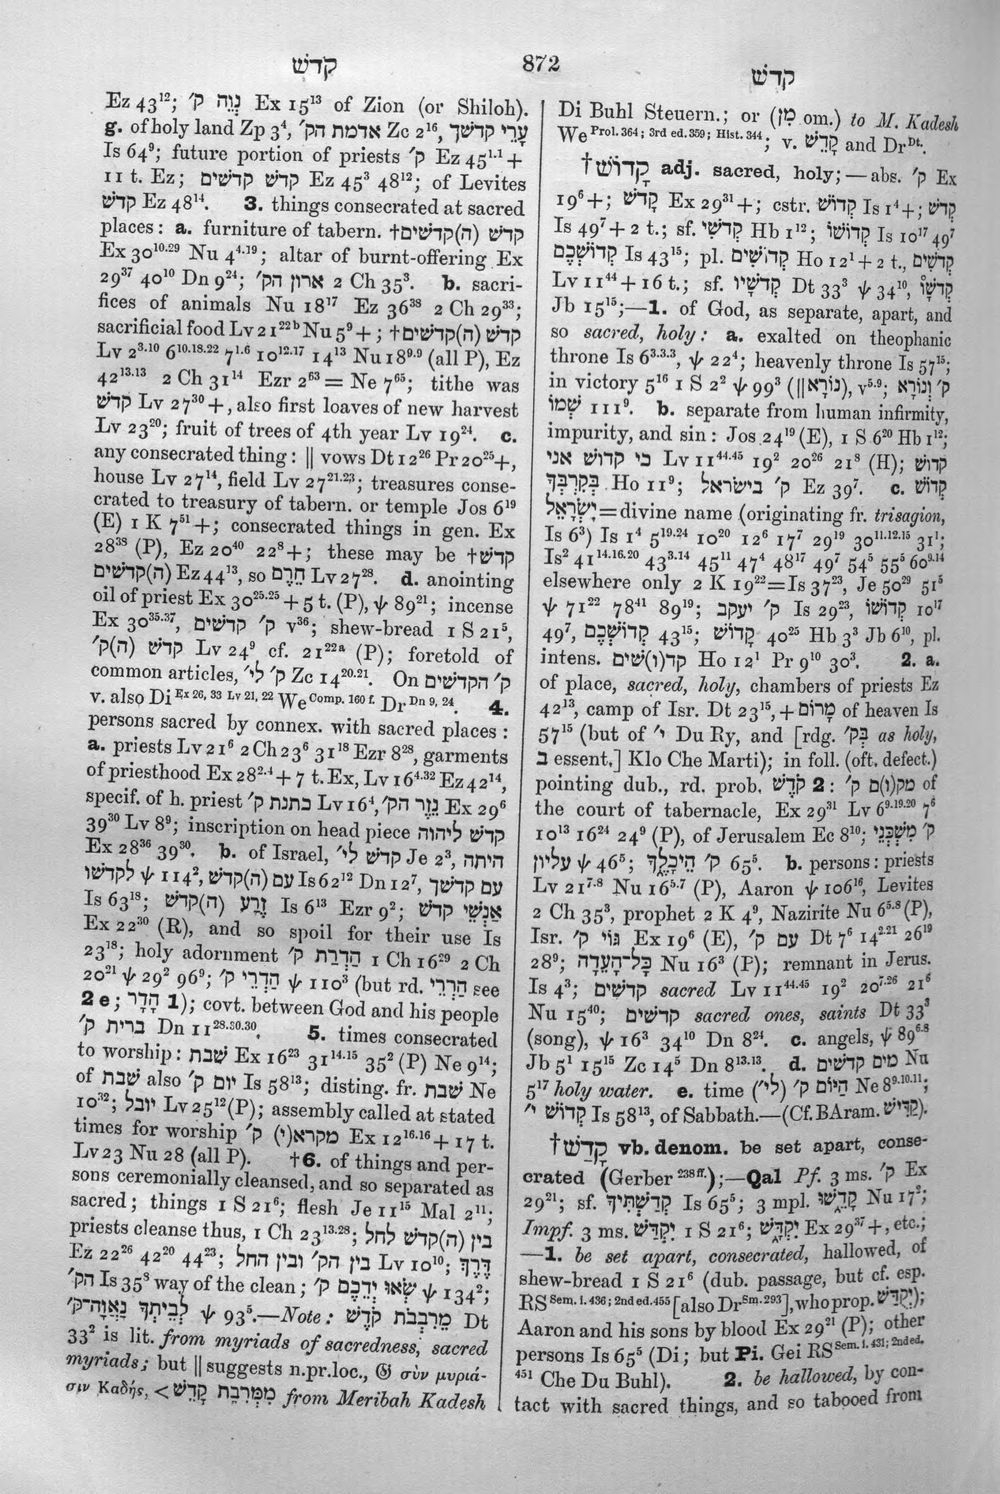 קדשׁ
872
קדשׁ
Ez 43¹²; נְוֵה ק׳ Ex 15¹³ of Zion (or Shiloh).
g. of holy land Zp 3⁴, אדמת הק׳ Zc 2¹⁶, עָרֵי קדשׁך
Is 64⁹; future portion of priests ק׳ Ez 45¹·¹ +
11 t. Ez; קדשׁ קדשׁים Ez 45³ 48¹²; of Levites
קדשׁ Ez 48¹⁴. 3. things consecrated at sacred
places: a. furniture of tabern. †קדשׁ (ה)קדשׁים
Ex 30¹⁰·²⁹ Nu 4⁴·¹⁹; altar of burnt-offering Ex
29³⁷ 40¹⁰ Dn 9²⁴; ארון הק׳ 2 Ch 35³. b. sacri-
fices of animals Nu 18¹⁷ Ez 36³⁸ 2 Ch 29³³;
sacrificial food Lv 21²²ᵇ Nu 5⁹ +; †קדשׁ (ה)קדשׁים
Lv 2³·¹⁰ 6¹⁰·¹⁸·²² 7¹·⁶ 10¹²·¹⁷ 14¹³ Nu 18⁹·⁹ (all P), Ez
42¹³·¹³ 2 Ch 31¹⁴ Ezr 2⁶³ = Ne 7⁶⁵; tithe was
קדשׁ Lv 27³⁰ +, also first loaves of new harvest
Lv 23²⁰; fruit of trees of 4th year Lv 19²⁴. c.
any consecrated thing: || vows Dt 12²⁶ Pr 20²⁵ +,
house Lv 27¹⁴, field Lv 27²¹·²³; treasures conse-
crated to treasury of tabern. or temple Jos 6¹⁹
(E) 1 K 7⁵¹ +; consecrated things in gen. Ex
28³⁸ (P), Ez 20⁴⁰ 22⁸ +; these may be †קדשׁ
(ה)קדשׁים Ez 44¹³, so חֵרֶם Lv 27²⁸. d. anointing
oil of priest Ex 30²⁵·²⁵ + 5 t. (P), ψ 89²¹; incense
Ex 30³⁵·³⁷, ק׳ קדשׁים v³⁶; shew-bread 1 S 21⁵,
קדשׁ (ה)ק׳ Lv 24⁹ cf. 21²²ᵃ (P); foretold of
common articles, ק׳ לי׳ Zc 14²⁰·²¹. On ק׳ הקדשׁים
v. also Di Ex 26, 33 Lv 21, 22 We Comp. 160 f. Dr Dn 9, 24. 4.
persons sacred by connex. with sacred places:
a. priests Lv 21⁶ 2 Ch 23⁶ 31¹⁸ Ezr 8²⁸, garments
of priesthood Ex 28²·⁴ + 7 t. Ex, Lv 16⁴·³² Ez 42¹⁴,
specif. of h. priest כתנת ק׳ Lv 16⁴, נֵזֶר הק׳ Ex 29⁶
39³⁰ Lv 8⁹; inscription on head piece קדשׁ ליהוה
Ex 28³⁶ 39³⁰. b. of Israel, קדשׁ לי׳ Je 2³, היתה
לקדשׁו ψ 114², עם (ה)קדשׁ Is 62¹² Dn 12⁷, עם קדשׁך
Is 63¹⁸; זֶרַע (ה)קדשׁ Is 6¹³ Ezr 9²; אַנְשֵׁי קדשׁ
Ex 22³⁰ (R), and so spoil for their use Is
23¹⁸; holy adornment הַדְרַת ק׳ 1 Ch 16²⁹ 2 Ch
20²¹ ψ 29² 96⁹; הַדְרֵי ק׳ ψ 110³ (but rd. הַרְרֵי see
2 e; הָדָר 1); covt. between God and his people
ברית ק׳ Dn 11²⁸·³⁰·³⁰. 5. times consecrated
to worship: שׁבת Ex 16²³ 31¹⁴·¹⁵ 35² (P) Ne 9¹⁴;
of שׁבת also יום ק׳ Is 58¹³; disting. fr. שׁבת Ne
10³²; יובל Lv 25¹² (P); assembly called at stated
times for worship מקרא(י) ק׳ Ex 12¹⁶·¹⁶ + 17 t.
Lv 23 Nu 28 (all P). †6. of things and per-
sons ceremonially cleansed, and so separated as
sacred; things 1 S 21⁶; flesh Je 11¹⁵ Mal 2¹¹;
priests cleanse thus, 1 Ch 23¹³·²⁸; בין (ה)קדשׁ לחל
Ez 22²⁶ 42²⁰ 44²³; בין הק׳ ובין החל Lv 10¹⁰; דֶּרֶךְ
הק׳ Is 35⁸ way of the clean; שְׂאוּ יְדֵכֶם ק׳ ψ 134²;
לְבֵיתְךָ נַאֲוָה־ק׳ ψ 93⁵.—Note: מֵרִבְבֹת קֹדֶשׁ Dt
33² is lit. from myriads of sacredness, sacred
myriads; but || suggests n.pr.loc., 𝔊 σὺν μυριά-
σιν Καδής, < מִמְּרִבַת קָדֵשׁ from Meribah Kadesh
Di Buhl Steuern.; or (מִן om.) to M. Kadesh
We Prol. 364; 3rd ed. 359; Hist. 344; v. קָדֵשׁ and Dr Dt.
†קָדוֹשׁ adj. sacred, holy;—abs. ק׳ Ex
19⁶ +; קָדֹשׁ Ex 29³¹ +; cstr. קְדוֹשׁ Is 1⁴ +; קְדֹשׁ
Is 49⁷ + 2 t.; sf. קְדֹשִׁי Hb 1¹²; קְדוֹשׁוֹ Is 10¹⁷ 49⁷
קְדוֹשְׁכֶם Is 43¹⁵; pl. קְדוֹשִׁים Ho 12¹ + 2 t., קְדֹשִׁים
Lv 11⁴⁴ + 16 t.; sf. קְדֹשָׁיו Dt 33³ ψ 34¹⁰, קְדֹשָׁו
Jb 15¹⁵;—1. of God, as separate, apart, and
so sacred, holy: a. exalted on theophanic
throne Is 6³·³·³, ψ 22⁴; heavenly throne Is 57¹⁵;
in victory 5¹⁶ 1 S 2² ψ 99³ (||נוֹרָא), v⁵·⁹; ק׳ וְנוֹרָא
שְׁמוֹ 111⁹. b. separate from human infirmity,
impurity, and sin: Jos 24¹⁹ (E), 1 S 6²⁰ Hb 1¹²;
כי קדושׁ אני Lv 11⁴⁴·⁴⁵ 19² 20²⁶ 21⁸ (H); קדושׁ
בְּקִרְבְּךָ Ho 11⁹; ק׳ בישׂראל Ez 39⁷. c. קְדוֹשׁ
יִשְׂרָאֵל = divine name (originating fr. trisagion,
Is 6³) Is 1⁴ 5¹⁹·²⁴ 10²⁰ 12⁶ 17⁷ 29¹⁹ 30¹¹·¹²·¹⁵ 31¹;
Is² 41¹⁴·¹⁶·²⁰ 43³·¹⁴ 45¹¹ 47⁴ 48¹⁷ 49⁷ 54⁵ 55⁵ 60⁹·¹⁴
elsewhere only 2 K 19²² = Is 37²³, Je 50²⁹ 51⁵
ψ 71²² 78⁴¹ 89¹⁹; ק׳ יעקב Is 29²³, קְדוֹשׁוֹ 10¹⁷
49⁷, קְדוֹשְׁכֶם 43¹⁵; קָדוֹשׁ 40²⁵ Hb 3³ Jb 6¹⁰, pl.
intens. קד(ו)שִׁים Ho 12¹ Pr 9¹⁰ 30³. 2. a.
of place, sacred, holy, chambers of priests Ez
42¹³, camp of Isr. Dt 23¹⁵, + מָרוֹם of heaven Is
57¹⁵ (but of י׳ Du Ry, and [rdg. בְּק׳ as holy,
ב essent.] Klo Che Marti); in foll. (oft. defect.)
pointing dub., rd. prob. קֹדֶשׁ 2: מק(ו)ם ק׳ of
the court of tabernacle, Ex 29³¹ Lv 6⁹·¹⁹·²⁰ 7⁶
10¹³ 16²⁴ 24⁹ (P), of Jerusalem Ec 8¹⁰; ק׳ מִשְׁכְּנֵי
עליון ψ 46⁵; ק׳ הֵיכָלֶךָ 65⁵. b. persons: priests
Lv 21⁷·⁸ Nu 16⁵·⁷ (P), Aaron ψ 106¹⁶, Levites
2 Ch 35³, prophet 2 K 4⁹, Nazirite Nu 6⁵·⁸ (P),
Isr. גּוֹי ק׳ Ex 19⁶ (E), עם ק׳ Dt 7⁶ 14²·²¹ 26¹⁹
28⁹; כָּל־הָעֵדָה Nu 16³ (P); remnant in Jerus.
Is 4³; קדשׁים sacred Lv 11⁴⁴·⁴⁵ 19² 20⁷·²⁶ 21⁶
Nu 15⁴⁰; קדשׁים sacred ones, saints Dt 33³
(song), ψ 16³ 34¹⁰ Dn 8²⁴. c. angels, ψ 89⁶·⁸
Jb 5¹ 15¹⁵ Zc 14⁵ Dn 8¹³·¹³. d. מים קדשׁים Nu
5¹⁷ holy water. e. time הַיּוֹם ק׳ (לי׳) Ne 8⁹·¹⁰·¹¹;
קְדוֹשׁ י׳ Is 58¹³, of Sabbath.—(Cf. BAram. קַדִּישׁ).
†קָדַשׁ vb. denom. be set apart, conse-
crated (Gerber 238 ff.);—Qal Pf. 3 ms. ק׳ Ex
29²¹; sf. קְדַשְׁתִּיךָ Is 65⁵; 3 mpl. קָדֵשׁוּ Nu 17²;
Impf. 3 ms. יִקְדַּשׁ 1 S 21⁶; יִקְדָּשׁ Ex 29³⁷ +, etc.;
—1. be set apart, consecrated, hallowed, of
shew-bread 1 S 21⁶ (dub. passage, but cf. esp.
RS Sem. i. 436; 2nd ed. 455 [also Dr Sm. 293], who prop. יִקְדָּשׁ);
Aaron and his sons by blood Ex 29²¹ (P); other
persons Is 65⁵ (Di; but Pi. Gei RS Sem. i. 431; 2nd ed.
451 Che Du Buhl). 2. be hallowed, by con-
tact with sacred things, and so tabooed from